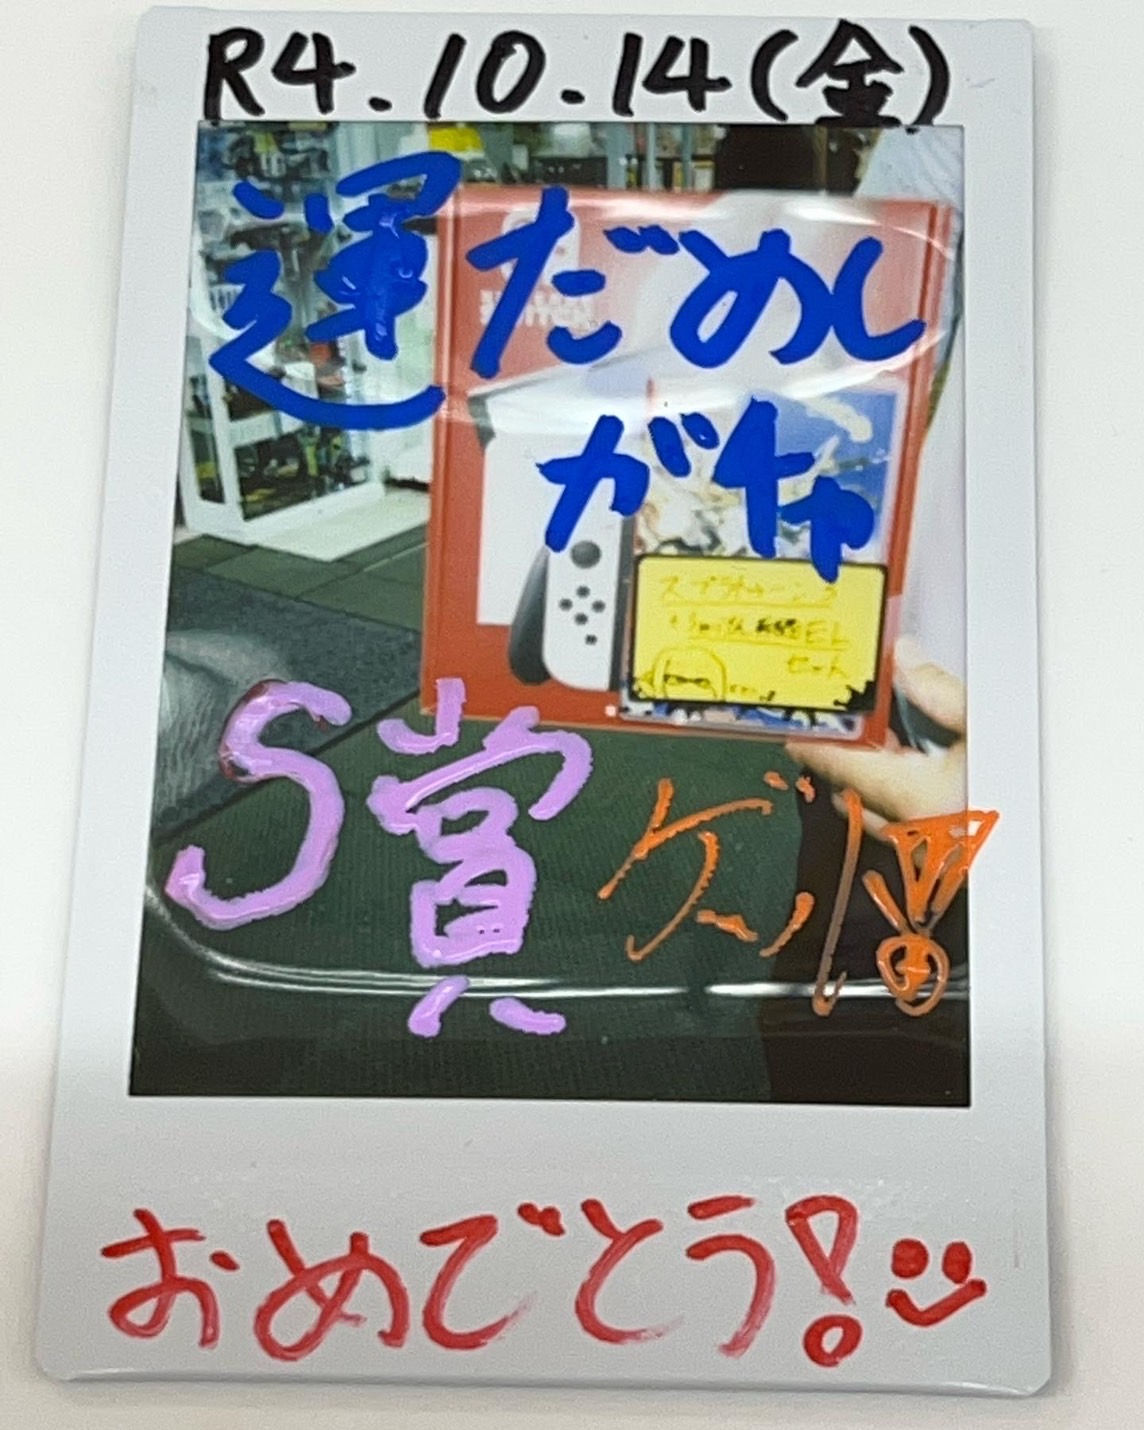 R4.10.14(金)
運だめし
ガチャ
スプラトゥーン3
有機EL
セット
S賞
ゲット!!
おめでとう!